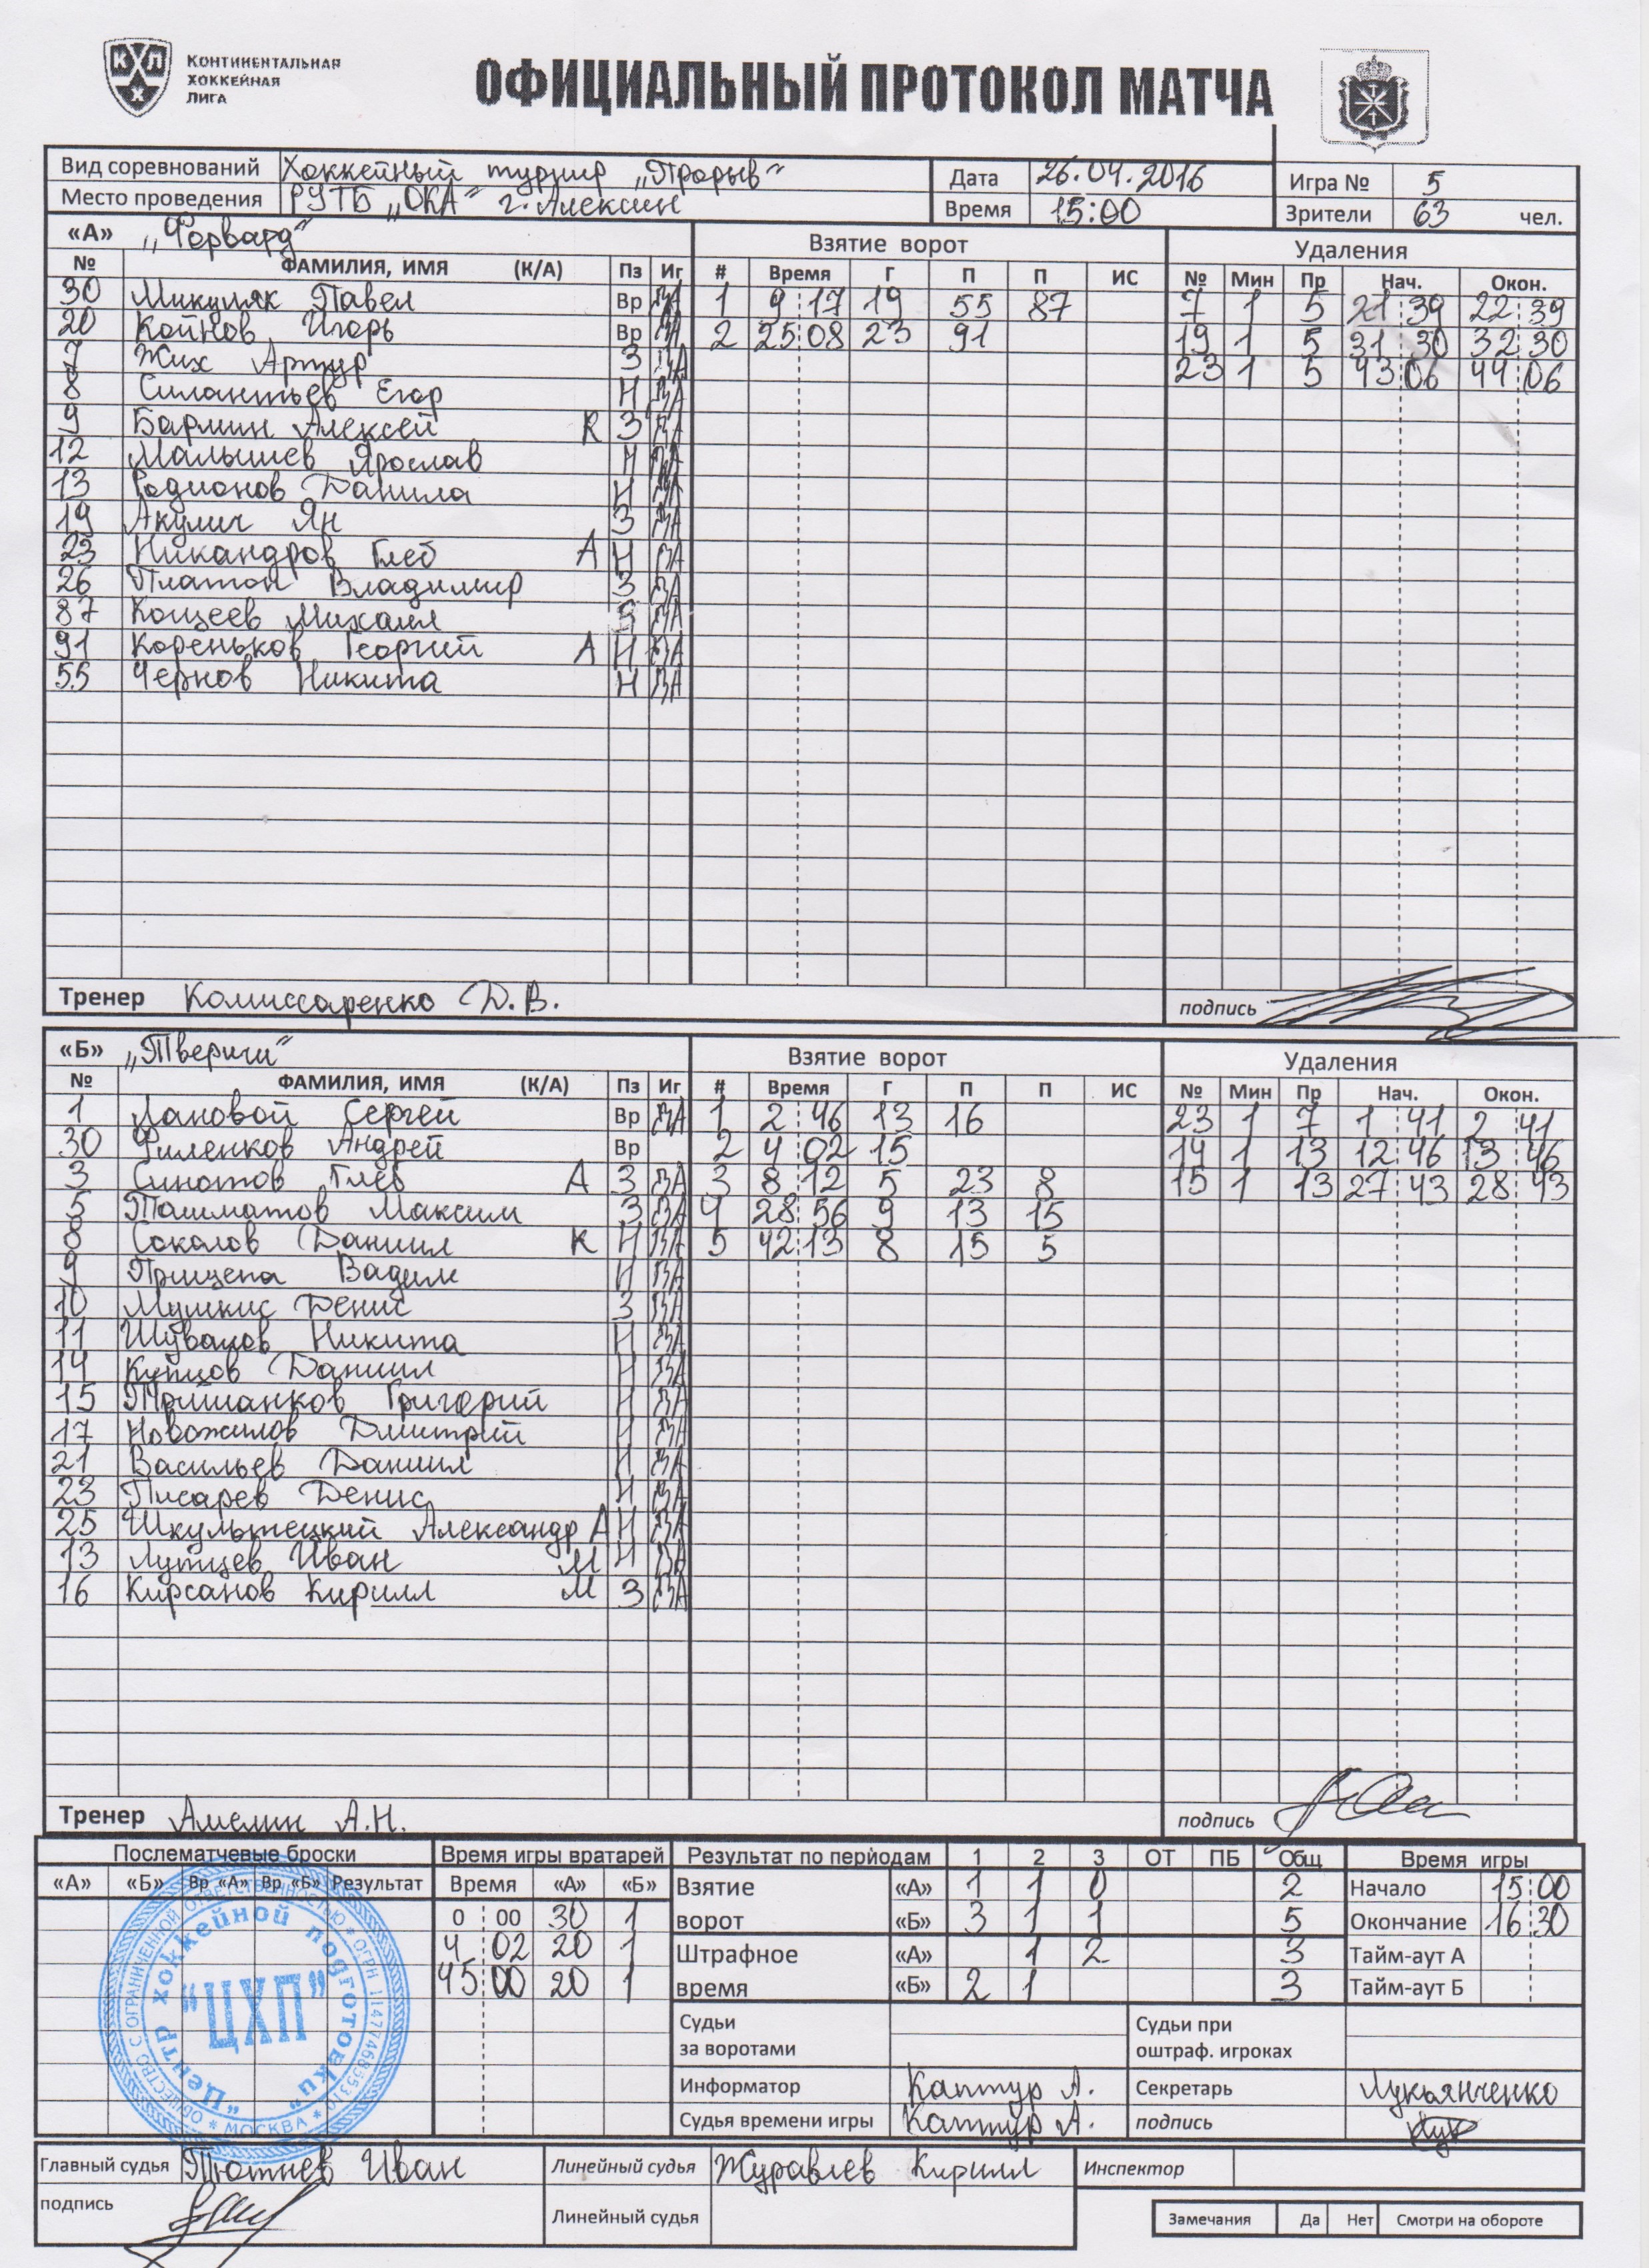 КОНТИНЕНТАЛЬНАЯ
ХОККЕЙНАЯ
ЛИГА
ОФИЦИАЛЬНЫЙ ПРОТОКОЛ МАТЧА
Вид соревнований Хоккейный турнир „Прорыв" Дата 26.04.2016 Игра № 5
Место проведения РУТБ „ОКА" г. Алексин Время 15:00 Зрители 63 чел.
«А» „Форвард" Взятие ворот Удаления
№ ФАМИЛИЯ, ИМЯ (К/А) Пз Иг # Время Г П П ИС № Мин Пр Нач. Окон.
30 Микуляк Павел Вр ВА 1 9 17 19 55 87 7 1 5 21 39 22 39
20 Койнов Игорь Вр ВА 2 25 08 23 91 19 1 5 31 30 32 30
7 Жих Артур З ВА 23 1 5 43 06 44 06
8 Силантьев Егор Н ВА
9 Бармин Алексей К З ВА
12 Малышев Ярослав Н ВА
13 Родионов Данила Н ВА
19 Акулич Ян З ВА
23 Никандров Глеб А Н ВА
26 Платон Владимир З ВА
87 Кощеев Михаил З ВА
91 Кореньков Георгий А Н ВА
55 Чернов Никита Н ВА
Тренер Комиссаренко Д.В. подпись
«Б» „Тверичи" Взятие ворот Удаления
№ ФАМИЛИЯ, ИМЯ (К/А) Пз Иг # Время Г П П ИС № Мин Пр Нач. Окон.
1 Лановой Сергей Вр ВА 1 2 46 13 16 23 1 7 1 41 2 41
30 Филенков Андрей Вр 2 4 02 15 14 1 13 12 46 13 46
3 Синотов Глеб А З ВА 3 8 12 5 23 8 15 1 13 27 43 28 43
5 Ташматов Максим З ВА 4 28 56 9 13 15
8 Соколов Даниил К Н ВА 5 42 13 8 15 5
9 Прищепа Вадим Н ВА
10 Мушкис Денис З ВА
11 Шувалов Никита Н ВА
14 Купцов Даниил Н ВА
15 Тришанков Григорий Н ВА
17 Новожилов Дмитрий Н ВА
21 Васильев Даниил Н ВА
23 Писарев Денис Н ВА
25 Шкультецкий Александр А Н ВА
13 Лутцев Иван М Н ВА
16 Кирсанов Кирилл М З ВА
Тренер Амелин А.Н. подпись
Послематчевые броски Время игры вратарей Результат по периодам 1 2 3 ОТ ПБ Общ Время игры
«А» «Б» Вр «А» Вр «Б» Результат Время «А» «Б» Взятие «А» 1 1 0 2 Начало 15 00
0 00 30 1 ворот «Б» 3 1 1 5 Окончание 16 30
4 02 20 1 Штрафное «А» 1 2 3 Тайм-аут А
45 00 20 1 время «Б» 2 1 3 Тайм-аут Б
Судьи за воротами Судьи при оштраф. игроках
Информатор Каптур А. Секретарь Лукьянченко
Судья времени игры Каптур А. подпись
ОБЩЕСТВО С ОГРАНИЧЕННОЙ ОТВЕТСТВЕННОСТЬЮ * МОСКВА *
"Центр хоккейной подготовки"
"ЦХП"
Главный судья Тютнев Иван Линейный судья Журавлев Кирилл Инспектор
подпись Линейный судья Замечания Да Нет Смотри на обороте